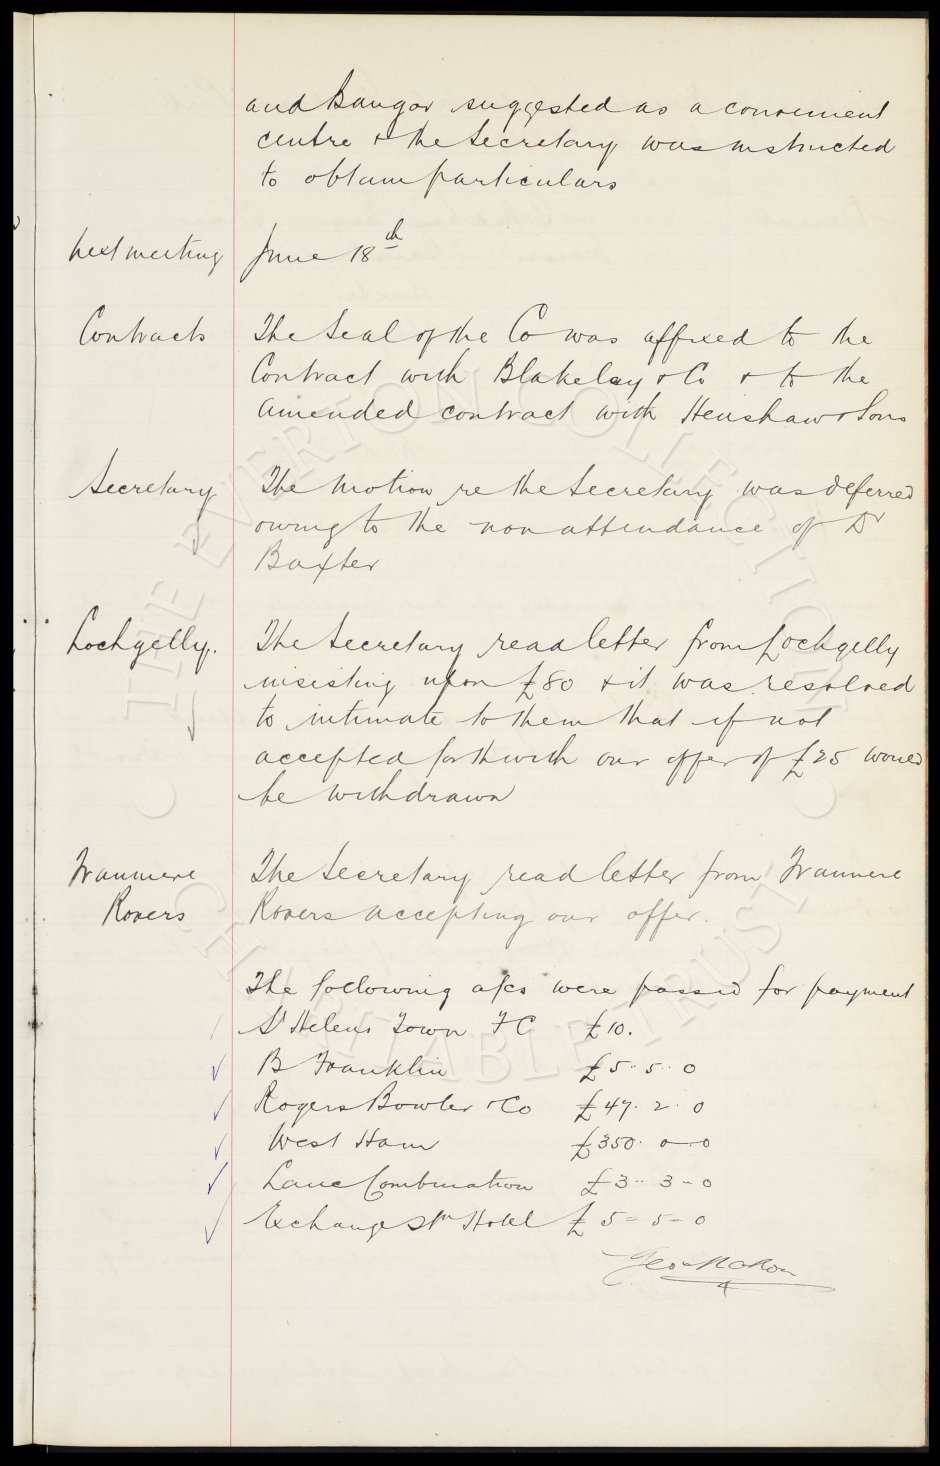 and Bangor suggested as a convenient
centre & the Secretary was instructed
to obtain particulars
Next meeting June 18th
Contracts The Seal of the Co was affixed to the
Contract with Blakeley & Co & to the
Amended contract with Henshaw & Sons
Secretary The Motion re the Secretary was deferred
owing to the non attendance of Dr
Baxter
Lochgelly. The Secretary read letter from Lochgelly
insisting upon £80 & it was resolved
to intimate to them that if not
accepted forthwith our offer of £25 would
be withdrawn
Tranmere The Secretary read letter from Tranmere
Rovers Rovers accepting our offer.
The following a/cs were passed for payment
St Helens Town F C £10.
B Franklin £5.5.0
Rogers Bowler & Co £47.2.0
West Ham £350.0-0
Lanc Combination £3..3-0
Exchange Stn Hotel £5-5-0
Geo Mahon
4
THE EVERTON COLLECTION
CHARITABLE TRUST